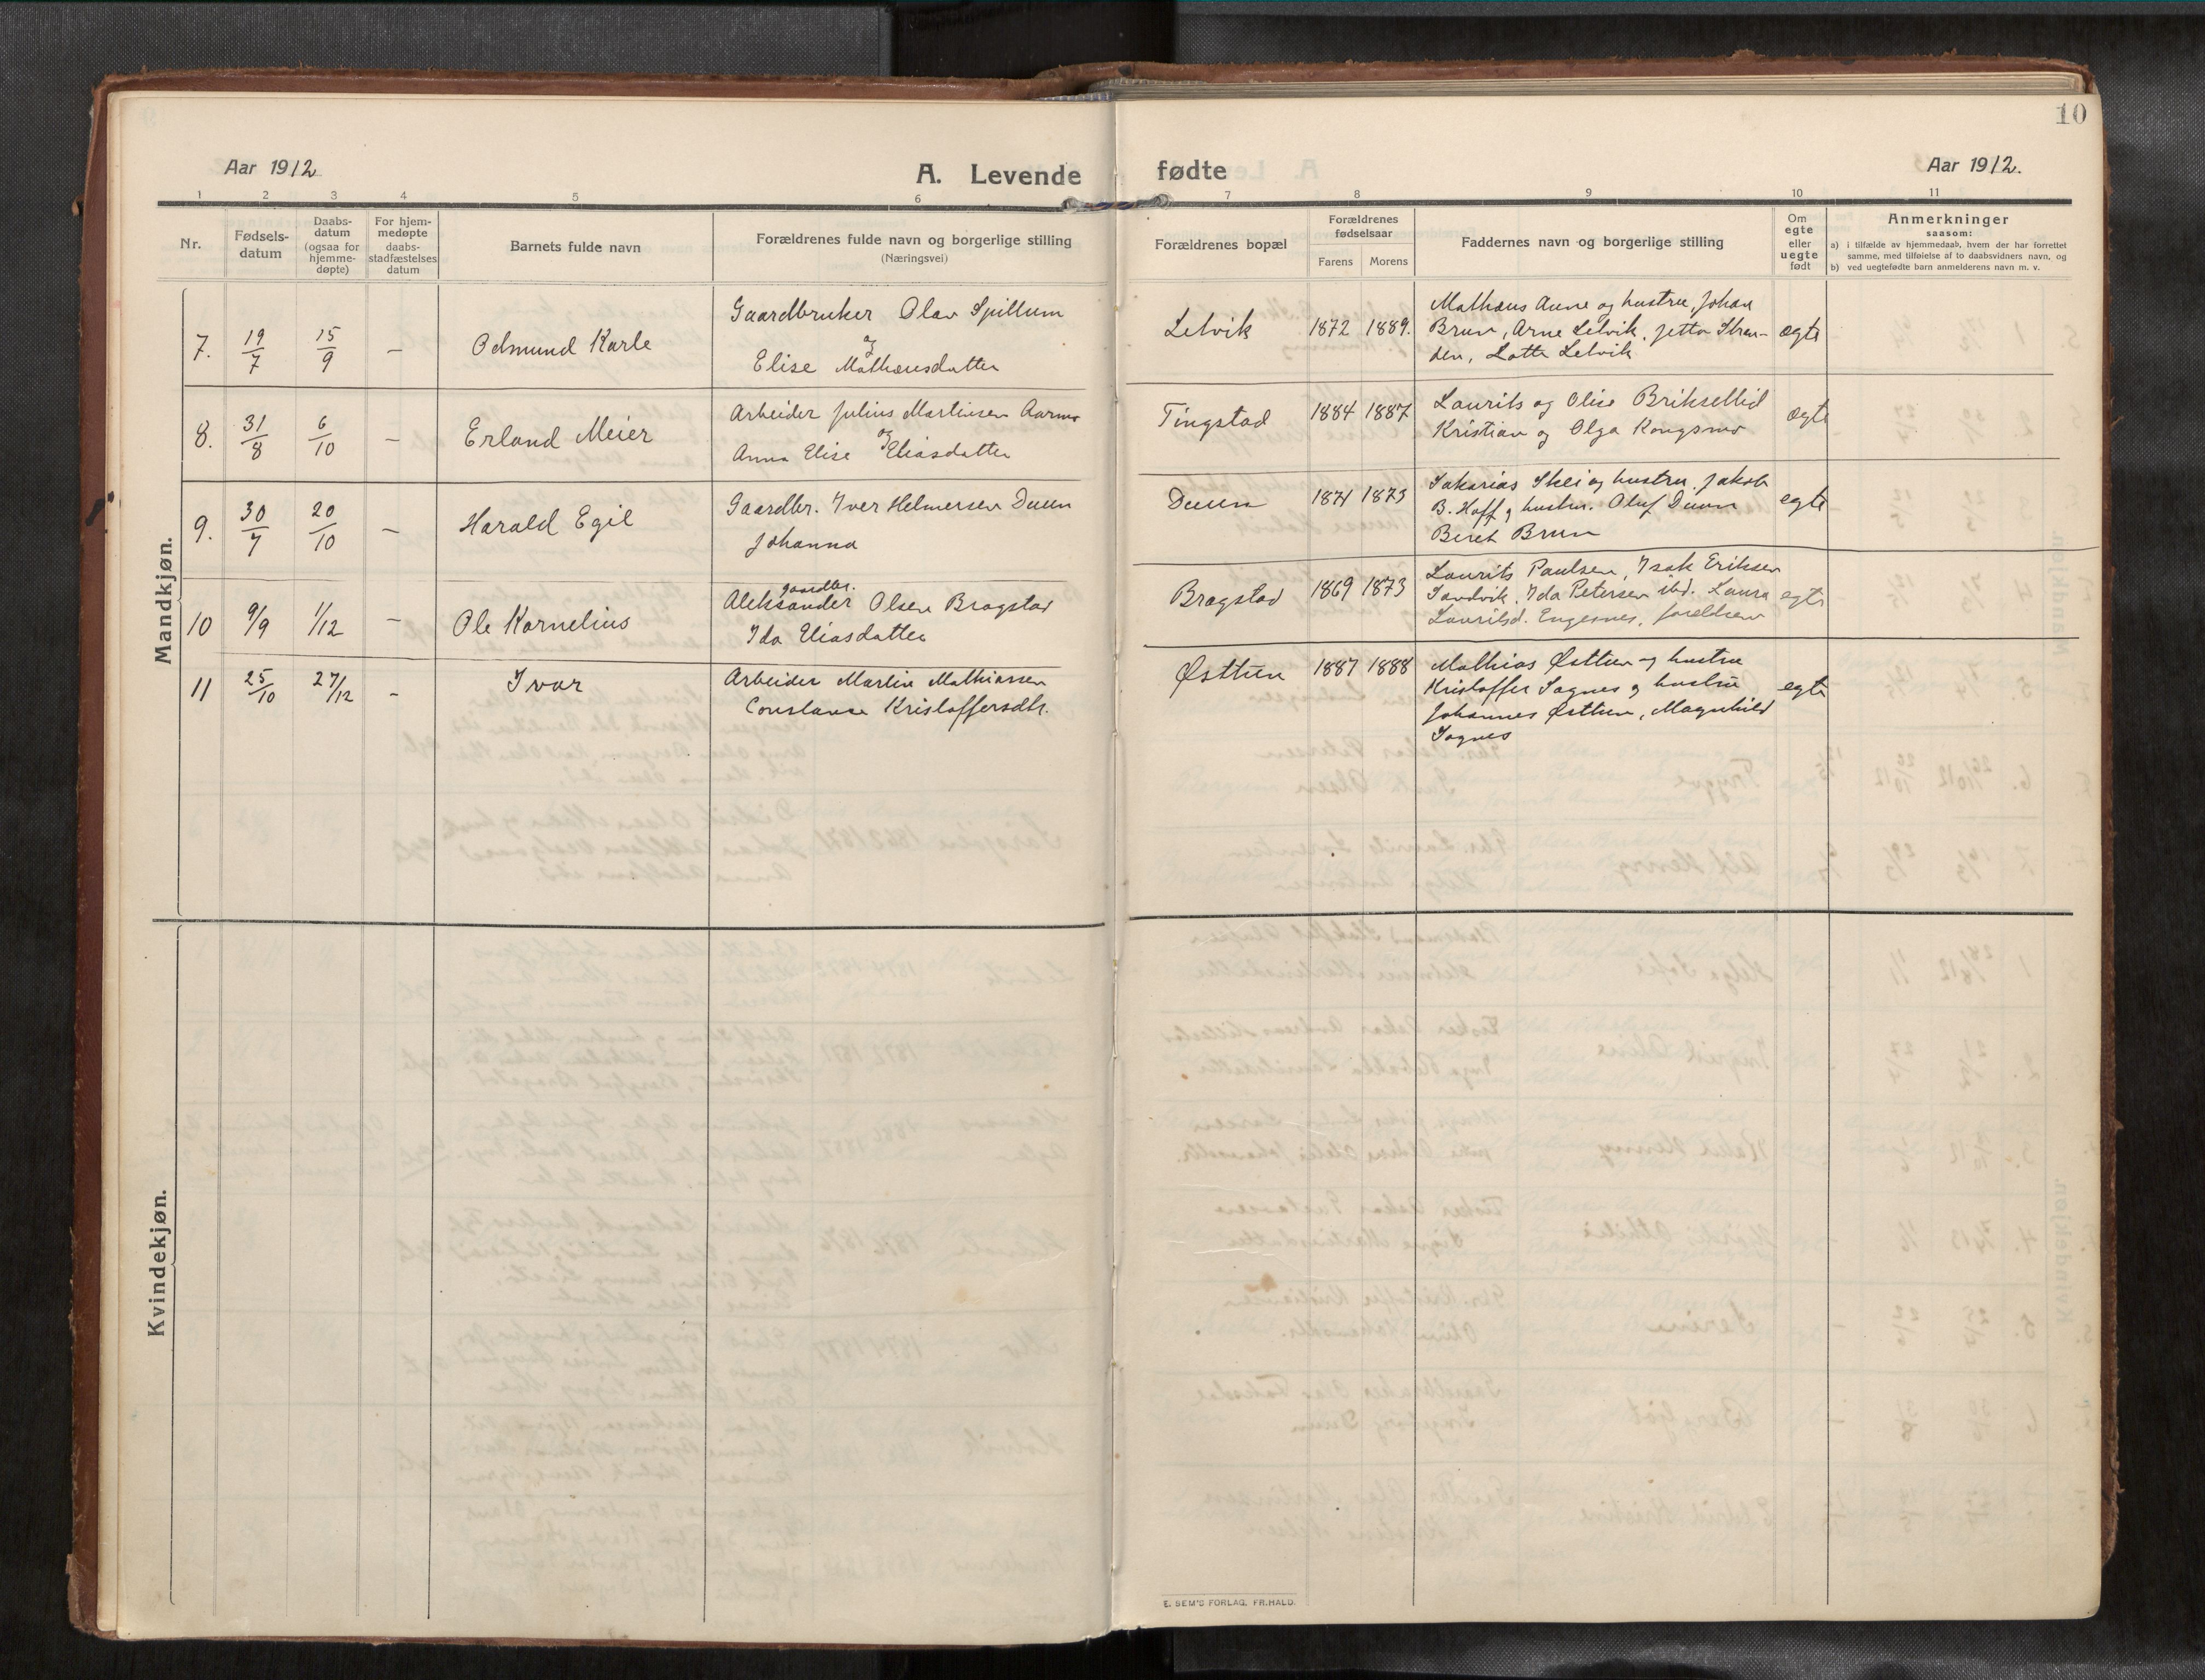 10
Aar 1912
A. Levende fødte
Aar 1912.
1 2 3 4 5 6 7 8 9 10 11
Nr.
Fødsels-
datum
Daabs-
datum
(ogsaa for
hjemme-
døpte)
For hjem-
medøpte
daabs-
stadfæstelses
datum
Barnets fulde navn
Forældrenes fulde navn og borgerlige stilling
(Næringsvei)
Forældrenes bopæl
Forældrenes
fødselsaar
Farens Morens
Faddernes navn og borgerlige stilling
Om
egte
eller
uegte
født
Anmerkninger
saasom:
a) i tilfælde av hjemmedaab, hvem der har forrettet
samme, med tilføielse af to daabsvidners navn, og
b) ved uegtefødte barn anmelderens navn m. v.
Mandkjøn.
7. 19/7 15/9 – Odmund Karle
Gaardbruker Olav Spillum
og
Elise Mathæusdatter
Letvik 1872 1889.
Mathæus Aune og hustru, Johan
Brun, Arne Letvik, Jetta Stran-
den, Lotte Letvik
egte
8. 31/8 6/10 – Erland Meier
Arbeider Julius Martinsen Aarmo
og
Anna Elise Eliasdatter
Tingstad 1884 1887
Laurits og Olise Briksellid
Kristian og Olga Kongsmo
egte
9. 30/7 20/10 – Harald Egil
Gaardbr. Iver Helmersen Duun
Johanna
Duun 1871 1873
Sakarias Skei og hustru, Jakob
B. Hoff og hustru. Oluf Duun
Beret Brun
egte
10 9/9 1/12 – Ole Kornelius
gaardbr.
Aleksander Olsen Bragstad
Ida Eliasdatter
Bragstad 1869 1873
Laurits Paulsen, Isak Eriksen
Sandvik, Ida Petersen ibd. Laura
Lauritsd. Engesnes, forældrene
egte
11 25/10 27/12 – Ivar
Arbeider Martin Mathiassen
Constanse Kristoffersdtr.
Østtun 1887 1888
Mathias Østtun og hustru
Kristoffer Sagnes og hustru
Johannes Østtun, Magnhild
Sagnes
egte
Kvindekjøn.
E. SEM'S FORLAG. FR.HALD.